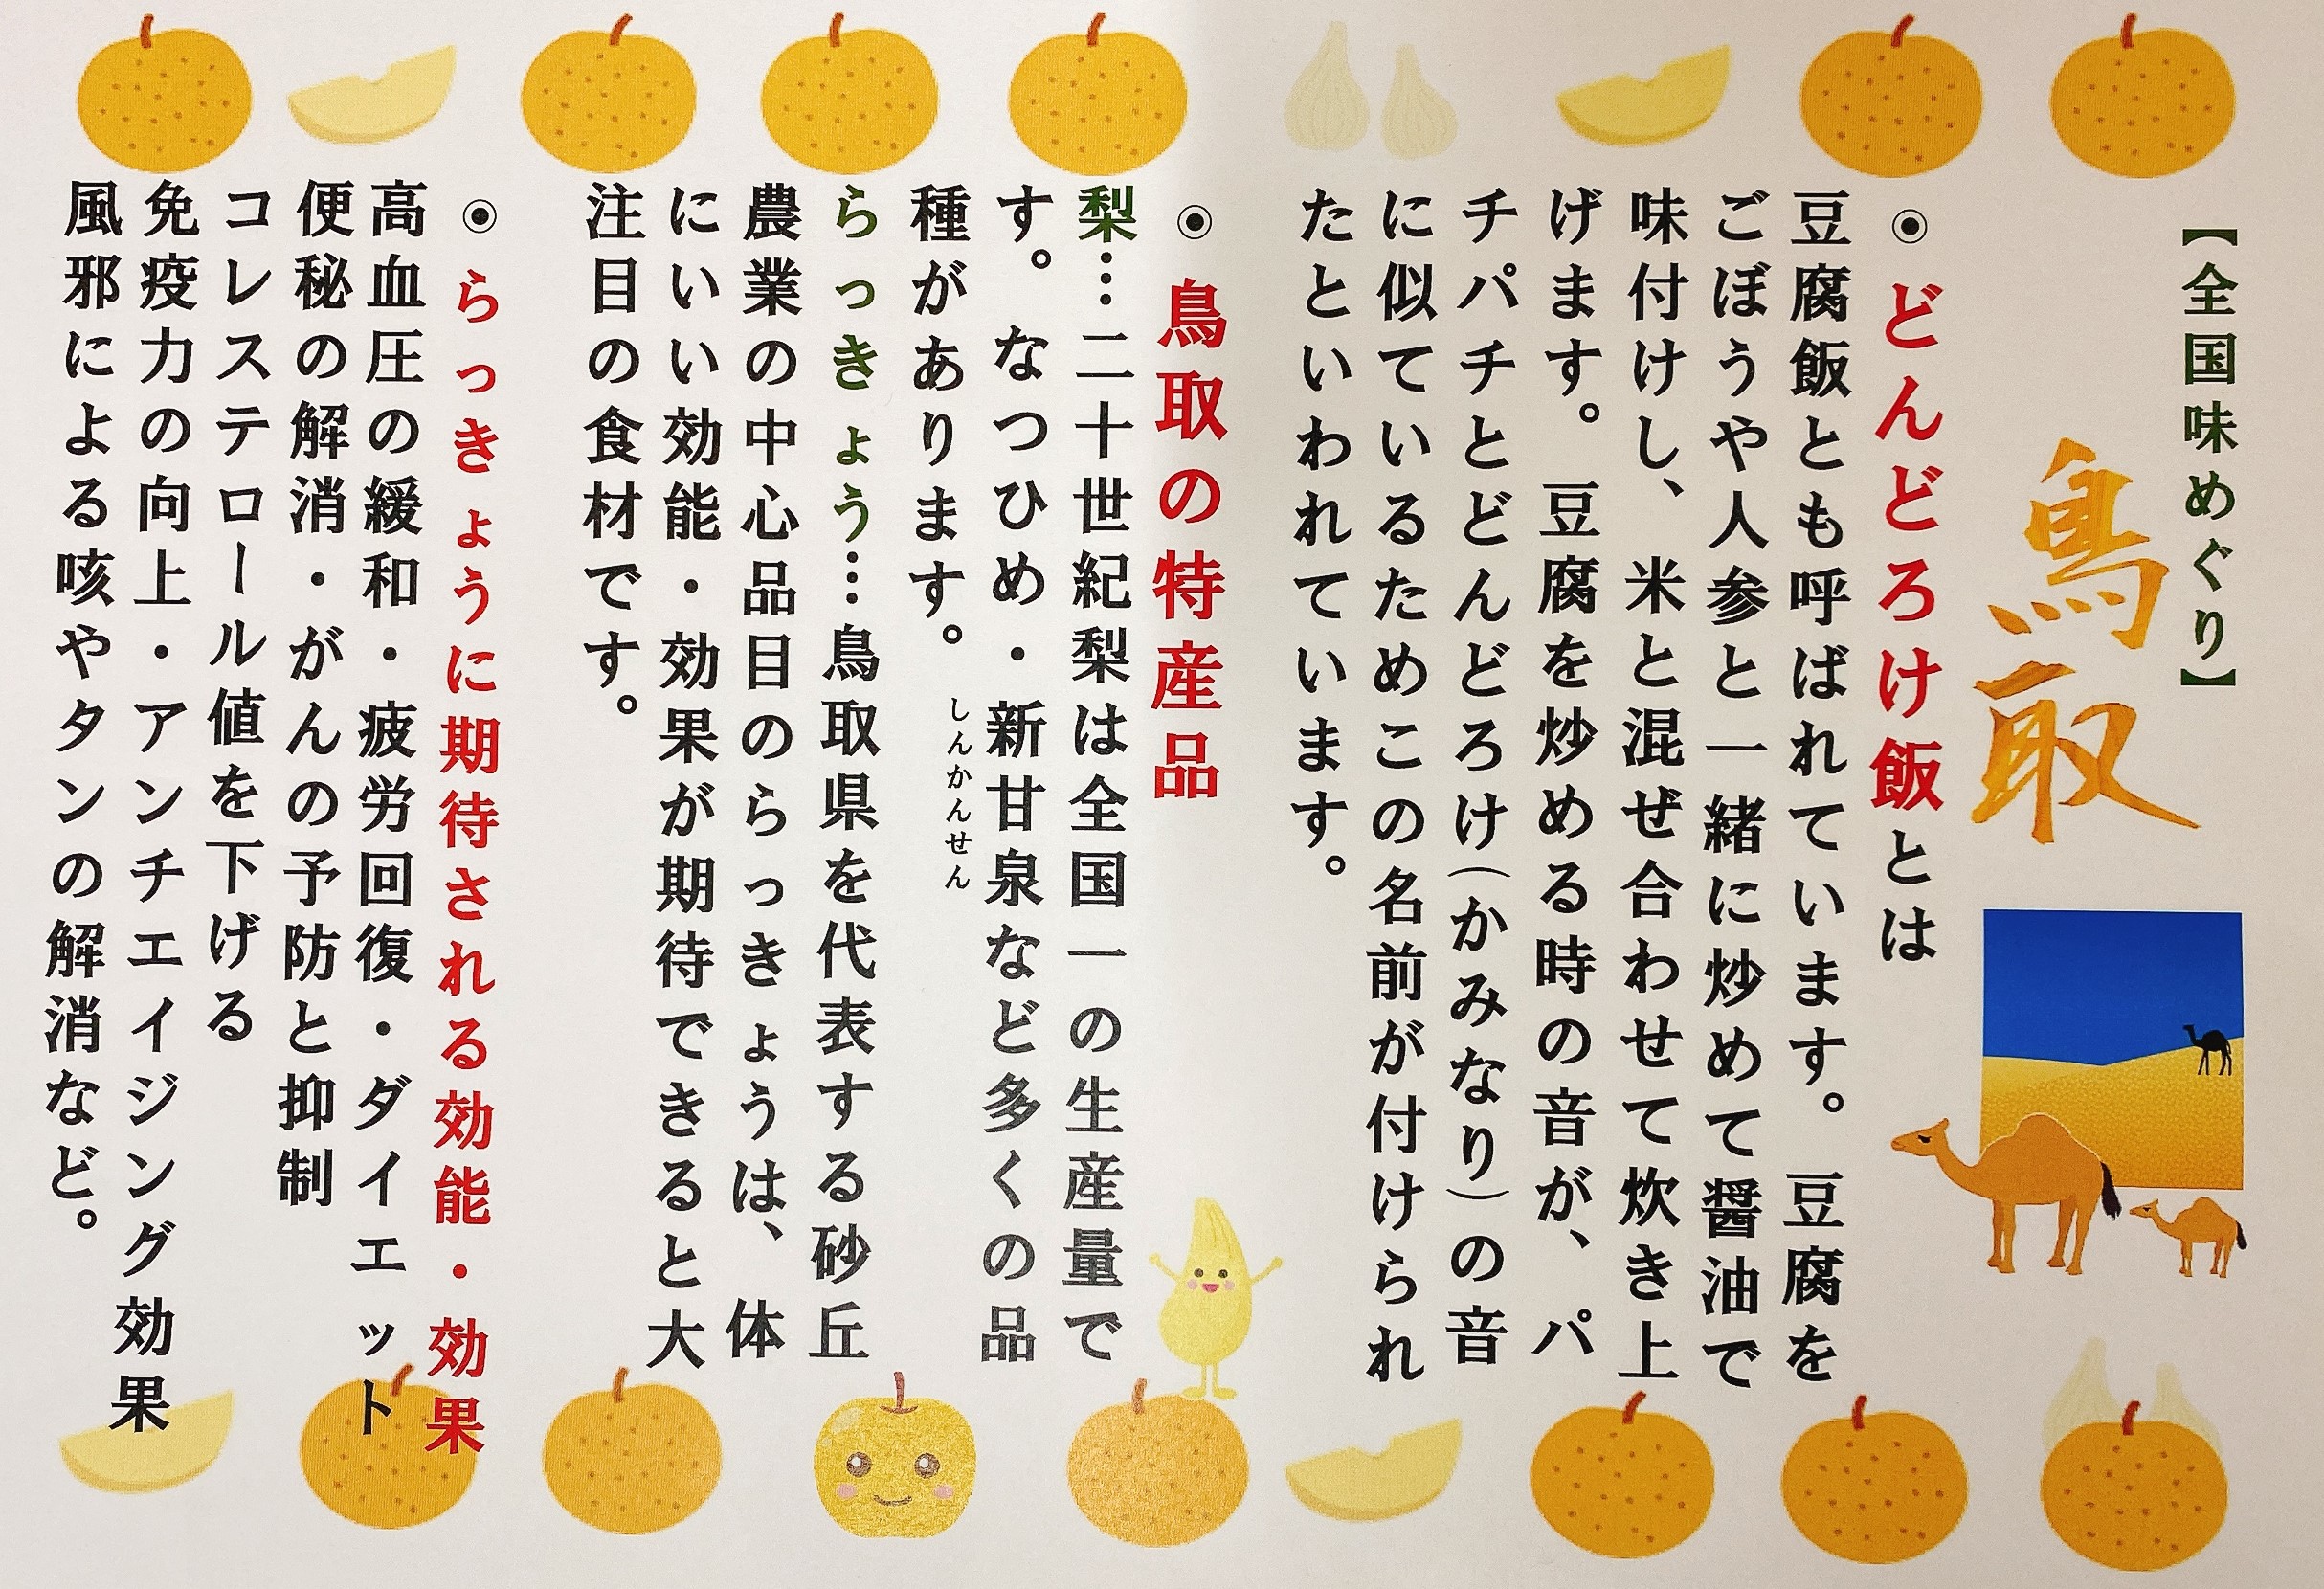 【全国味めぐり】
鳥取
◉どんどろけ飯とは
豆腐飯とも呼ばれています。豆腐を
ごぼうや人参と一緒に炒めて醤油で
味付けし、米と混ぜ合わせて炊き上
げます。豆腐を炒める時の音が、パ
チパチとどんどろけ(かみなり)の音
に似ているためこの名前が付けられ
たといわれています。
◉鳥取の特産品
梨…二十世紀梨は全国一の生産量で
す。なつひめ・新甘泉など多くの品
しんかんせん
種があります。
らっきょう…鳥取県を代表する砂丘
農業の中心品目のらっきょうは、体
にいい効能・効果が期待できると大
注目の食材です。
◉らっきょうに期待される効能・効果
高血圧の緩和・疲労回復・ダイエット
便秘の解消・がんの予防と抑制
コレステロール値を下げる
免疫力の向上・アンチエイジング効果
風邪による咳やタンの解消など。